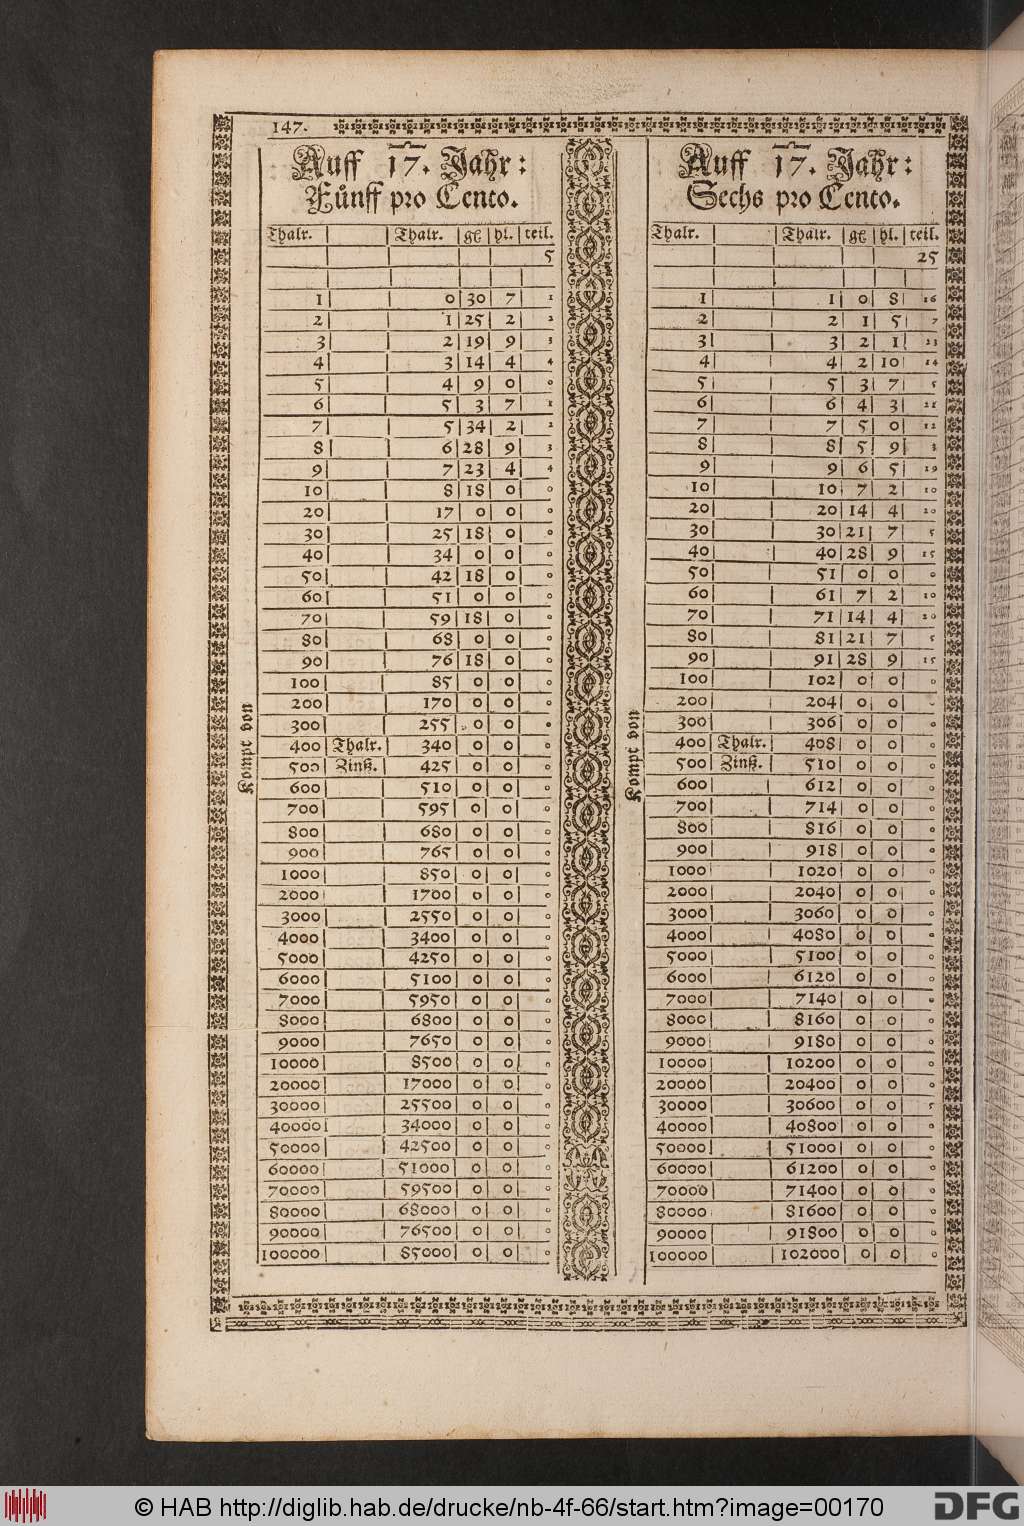 147.
Auff 17. Jahr:
Fůnff pro Cento.
Thalr. Thalr. gł hl. teil.
5
1 0 30 7 1
2 1 25 2 2
3 2 19 9 3
4 3 14 4 4
5 4 9 0 0
6 5 3 7 1
7 5 34 2 2
8 6 28 9 3
9 7 23 4 4
10 8 18 0 0
20 17 0 0 0
30 25 18 0 0
40 34 0 0 0
50 42 18 0 0
60 51 0 0 0
70 59 18 0 0
80 68 0 0 0
90 76 18 0 0
100 85 0 0 0
200 170 0 0 0
300 255 0 0 0
400 Thalr. 340 0 0 0
500 Zinß. 425 0 0 0
600 510 0 0 0
700 595 0 0 0
800 680 0 0 0
900 765 0 0 0
1000 850 0 0 0
2000 1700 0 0 0
3000 2550 0 0 0
4000 3400 0 0 0
5000 4250 0 0 0
6000 5100 0 0 0
7000 5950 0 0 0
8000 6800 0 0 0
9000 7650 0 0 0
10000 8500 0 0 0
20000 17000 0 0 0
30000 25500 0 0 0
40000 34000 0 0 0
50000 42500 0 0 0
60000 51000 0 0 0
70000 59500 0 0 0
80000 68000 0 0 0
90000 76500 0 0 0
100000 85000 0 0 0
Kompt von
Auff 17. Jahr:
Sechs pro Cento.
Thalr. Thalr. gł hl. teil.
25
1 1 0 8 16
2 2 1 5 7
3 3 2 1 23
4 4 2 10 14
5 5 3 7 5
6 6 4 3 21
7 7 5 0 12
8 8 5 9 3
9 9 6 5 19
10 10 7 2 10
20 20 14 4 20
30 30 21 7 5
40 40 28 9 15
50 51 0 0 0
60 61 7 2 10
70 71 14 4 20
80 81 21 7 5
90 91 28 9 15
100 102 0 0 0
200 204 0 0 0
300 306 0 0 0
400 Thalr. 408 0 0 0
500 Zinß. 510 0 0 0
600 612 0 0 0
700 714 0 0 0
800 816 0 0 0
900 918 0 0 0
1000 1020 0 0 0
2000 2040 0 0 0
3000 3060 0 0 0
4000 4080 0 0 0
5000 5100 0 0 0
6000 6120 0 0 0
7000 7140 0 0 0
8000 8160 0 0 0
9000 9180 0 0 0
10000 10200 0 0 0
20000 20400 0 0 0
30000 30600 0 0
40000 40800 0 0 0
50000 51000 0 0 0
60000 61200 0 0 0
70000 71400 0 0 0
80000 81600 0 0 0
90000 91800 0 0 0
100000 102000 0 0 0
Kompt von
© HAB http://diglib.hab.de/drucke/nb-4f-66/start.htm?image=00170
DFG